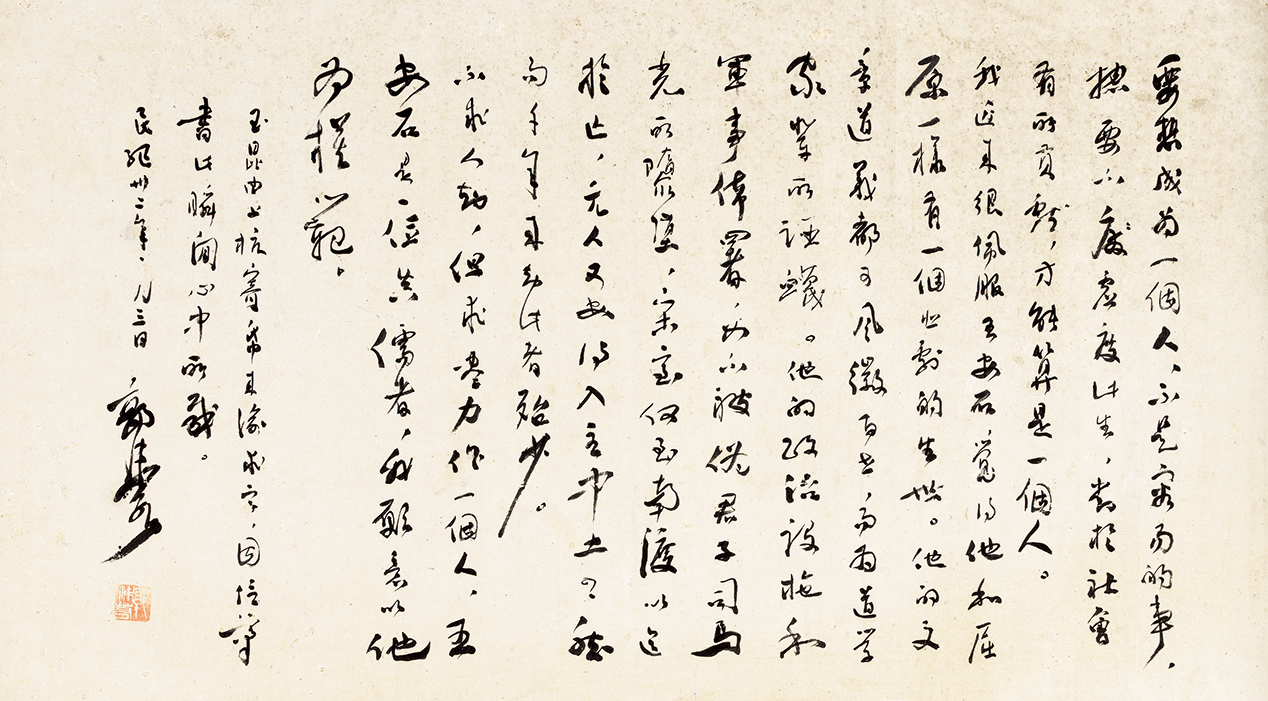 要想成為一個人，不是容易的事，
總要不虛度此生，對於社會
有所貢獻，才能算是一個人。
我近來很佩服王安石，覺得他和屈
原一樣有一個悲劇的生世。他的文
章道義都可風徽百世，而為道學
家輩所誣衊。他的政治設施和
軍事佈署，如不被偽君子司馬
光所隳墮，宋室何至南渡以迄
於亡，元人又安得入主中土？然
而千年來知此者殆少。
不求人知，但求盡力作一個人，王
安石是一位真儒者，我願意以他
為模範。
昆由北碚寄紙來渝求字，因信筆
書此瞬間心中所感。
民紀卅二年，八月三日，郭沫若